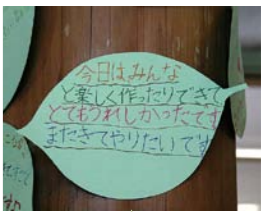 今日はみんな
と楽しく作ったりできて
とてもうれしかったです
またきてやりたいです